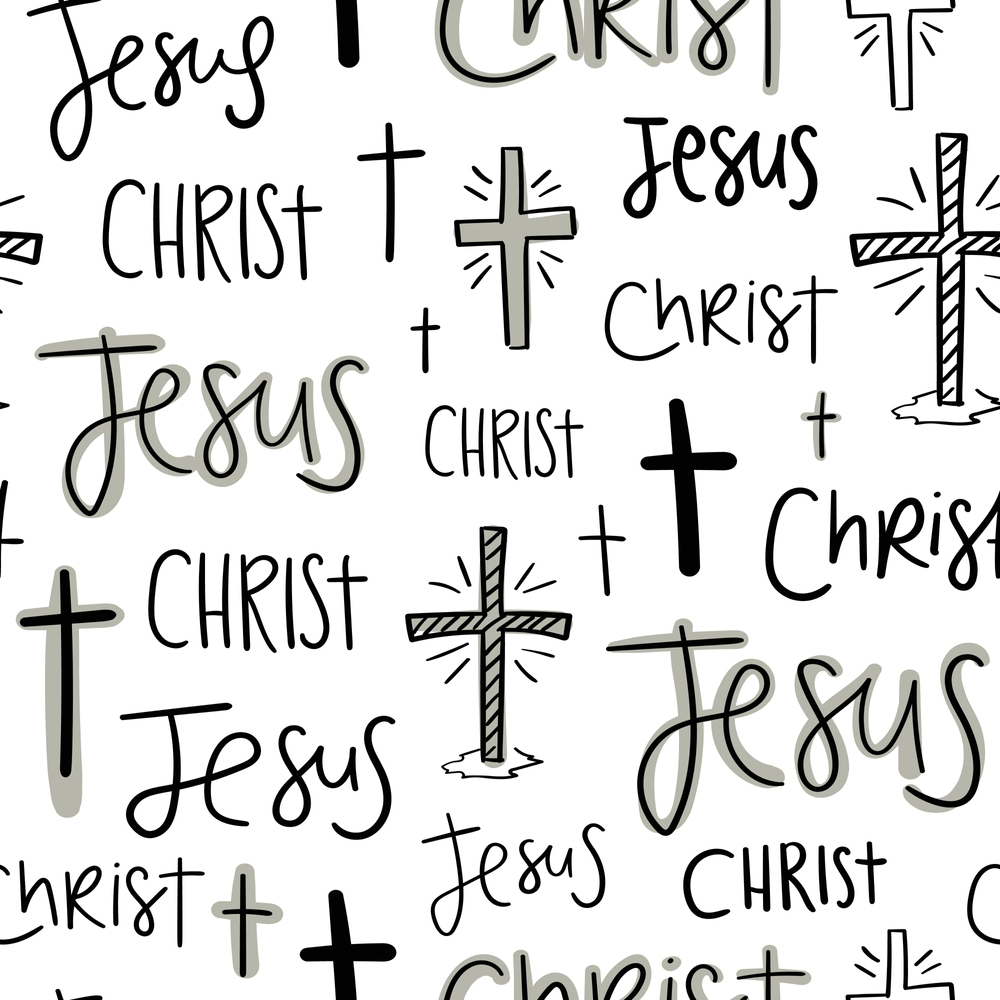 Jesus
Christ
Jesus
CHRIST
Christ
Jesus
CHRIST
Christ
CHRIST
Jesus
Jesus
Jesus
CHRIST
Christ
Christ